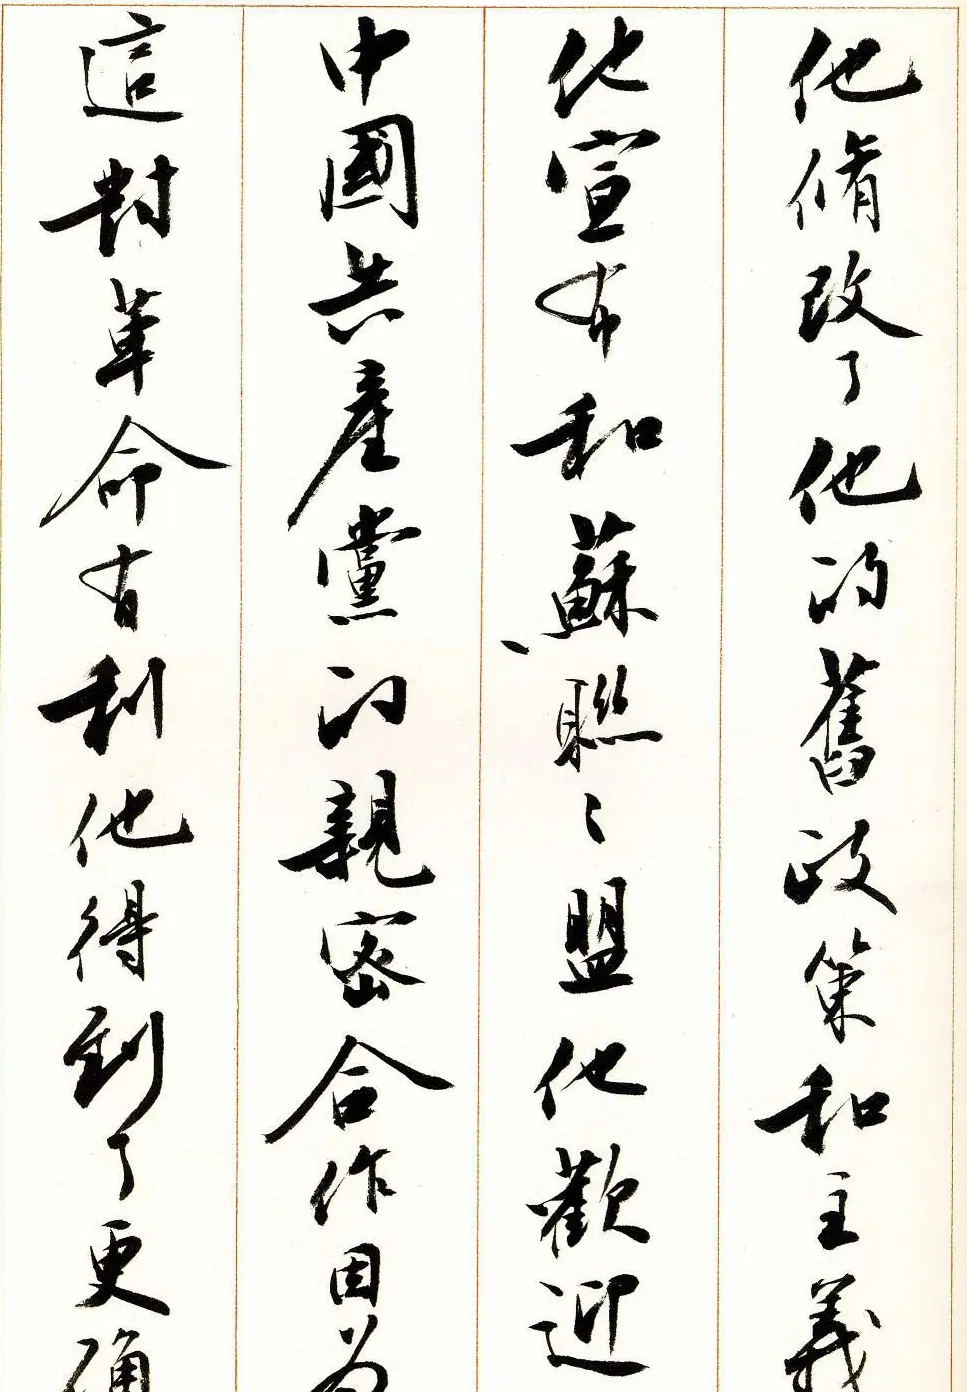 他脩改了他的舊政策和主義
他宣布和蘇聯〻盟他歡迎
中國共產黨的親密合作因為
這對革命有利他得到了更確